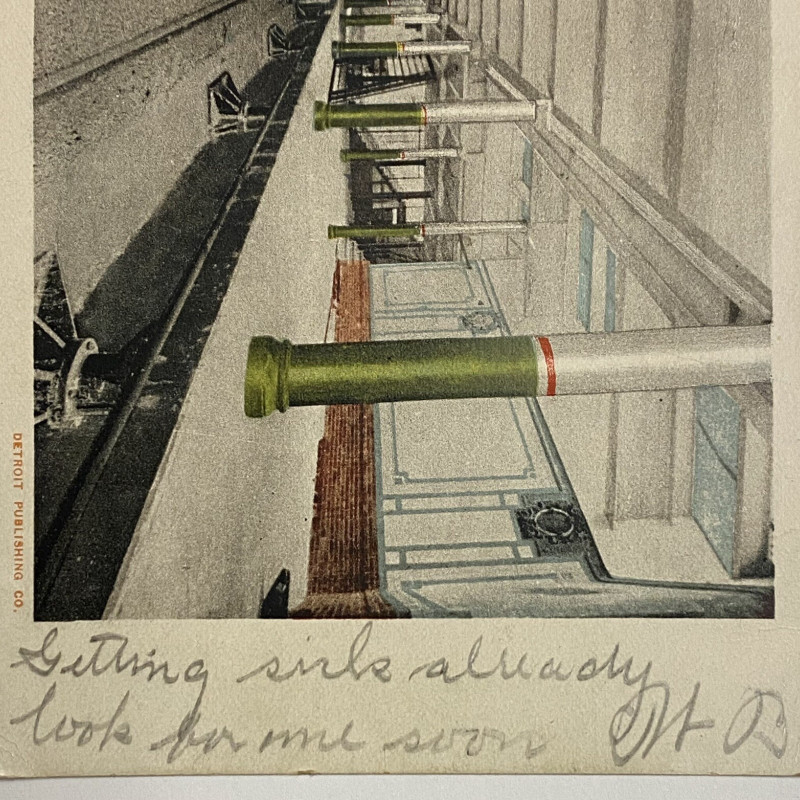 DETROIT PUBLISHING CO.
Getting sick already
look for me soon